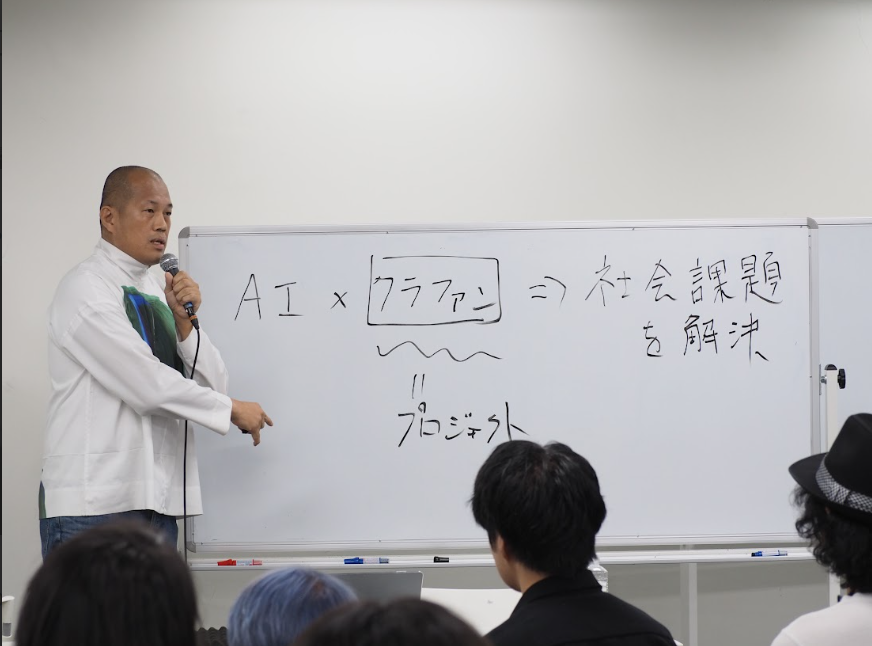 AI × クラファン ⇒ 社会課題
を解決
〃
プロジェクト